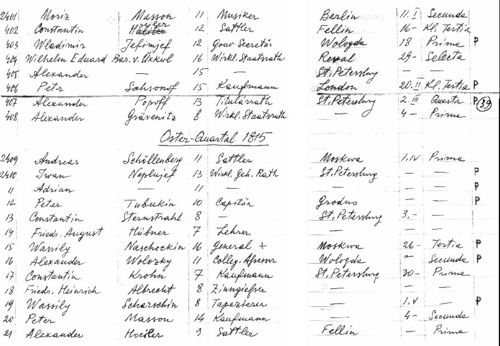 2401 Moriz Masson 11 Musiker Berlin 11. I Secunda
402 Constantin 12 Sattler Fellin 16- Kl. Tertia
403 Wladimir Jefimjef 12 Gouv. Secretär Wologda 18 Prima P
404 Wilhelm Eduard Bar. v. Uxkul 16 Wirkl. Staatsrath Reval 29- Selecta
405 Alexander — 15 — St. Petersburg — —
406 Petr Sahsonof 15 Kaufmann London 20. II Kl. Tertia P
407 Alexander Popoff 13 Titularrath St. Petersburg 2. III Quarta P 39
408 Alexander Grävenitz 8 Wirkl. Staatsrath — 4- Prima
Oster-Quartal 1815
2409 Andreas Schöllenberg 11 Sattler Moskwa 1. IV Prima
2410 Iwan Neplujef 13 Wirkl. Geh. Rath St. Petersburg — — P
11 Adrian — 11 — — — — P
12 Peter Tubukin 10 Capitän Grodno — — P
13 Constantin Sternstrahl 8 — St. Petersburg 3.- —
14 Friedr. August Hübner 7 Lehrer — — —
15 Wassily Naschockin 16 General + Moskwa 26- Tertia P
16 Alexander Wolozky 11 Colleg. Assessor Wologda " Secunda P
17 Constantin Krohn 7 Kaufmann St. Petersburg 30- Prima
18 Friedr. Heinrich Albrecht 8 Zinngießer — — —
19 Wassily Scharschin 8 Tapezierer — 1. V — P
20 Peter Masson 14 Kaufmann — 4- Secunda
21 Alexander 9 Sattler Fellin — Prima